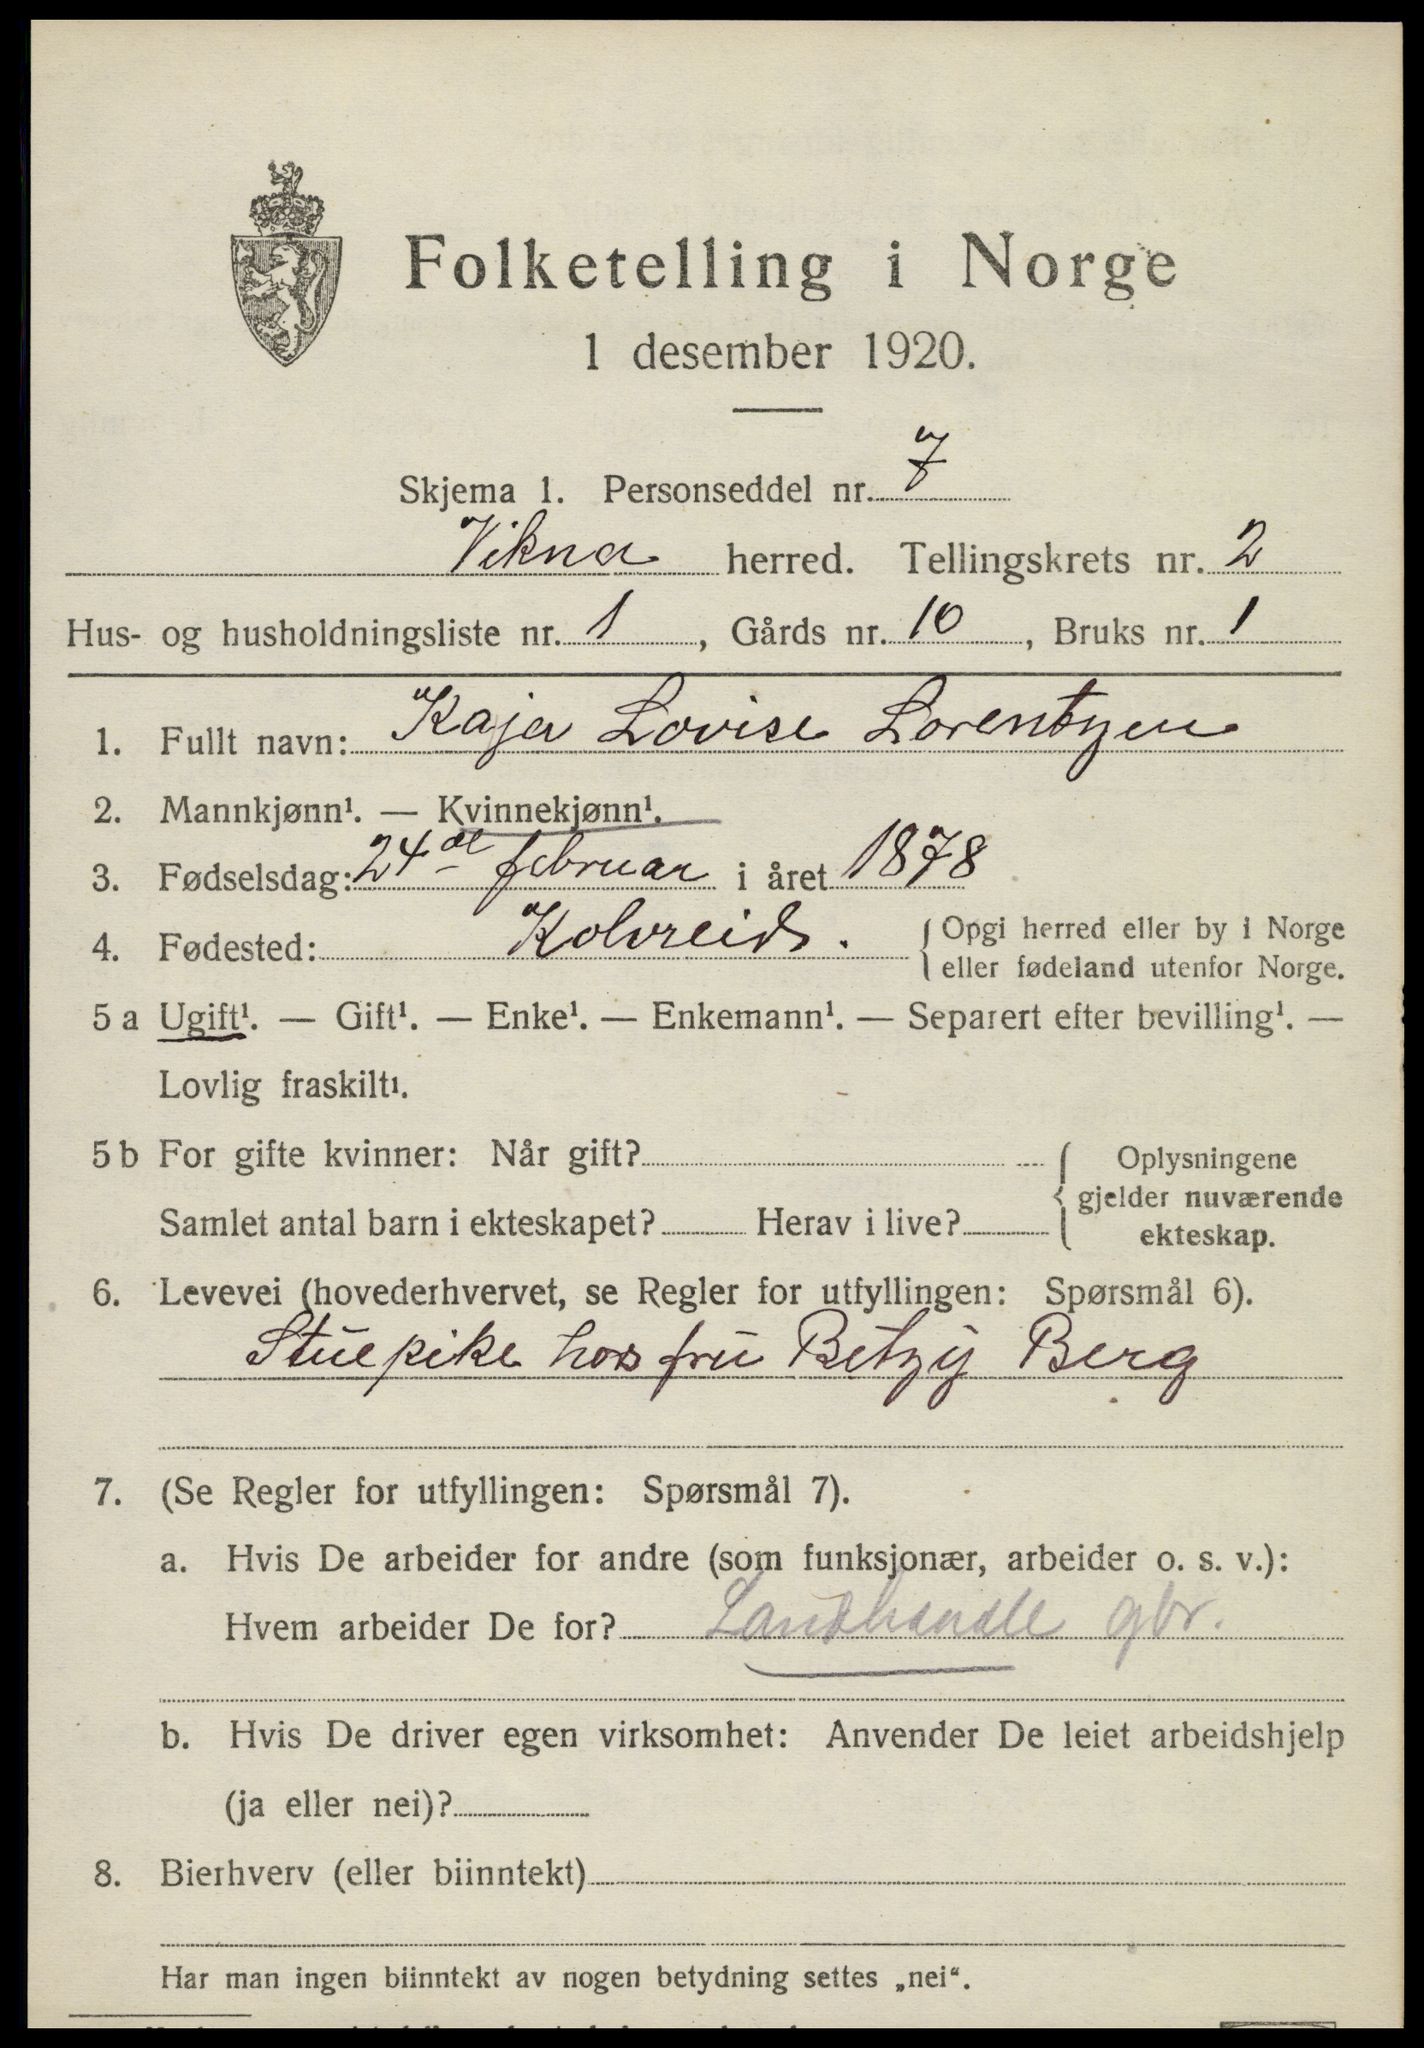 Folketelling i Norge
1 desember 1920.
Skjema 1. Personseddel nr. 7
Vikna herred. Tellingskrets nr. 2
Hus- og husholdningsliste nr. 1, Gårds nr. 10, Bruks nr. 1
1. Fullt navn: Kaja Lovise Lorentzen
2. Mannkjønn¹. — Kvinnekjønn¹.
3. Fødselsdag: 24de februar i året 1878
4. Fødested: Kolvreid. { Opgi herred eller by i Norge
eller fødeland utenfor Norge.
5 a Ugift¹. — Gift¹. — Enke¹. — Enkemann¹. — Separert efter bevilling¹. —
Lovlig fraskilt¹.
5 b For gifte kvinner: Når gift? { Oplysningene
gjelder nuværende
Samlet antal barn i ekteskapet? Herav i live?
ekteskap.
6. Levevei (hovederhvervet, se Regler for utfyllingen: Spørsmål 6).
Stuepike hos fru Betzy Berg
7. (Se Regler for utfyllingen: Spørsmål 7).
a. Hvis De arbeider for andre (som funksjonær, arbeider o. s. v.):
Hvem arbeider De for? Landhandle gbr.
b. Hvis De driver egen virksomhet: Anvender De leiet arbeidshjelp
(ja eller nei)?
8. Bierhverv (eller biinntekt)
Har man ingen biinntekt av nogen betydning settes „nei".